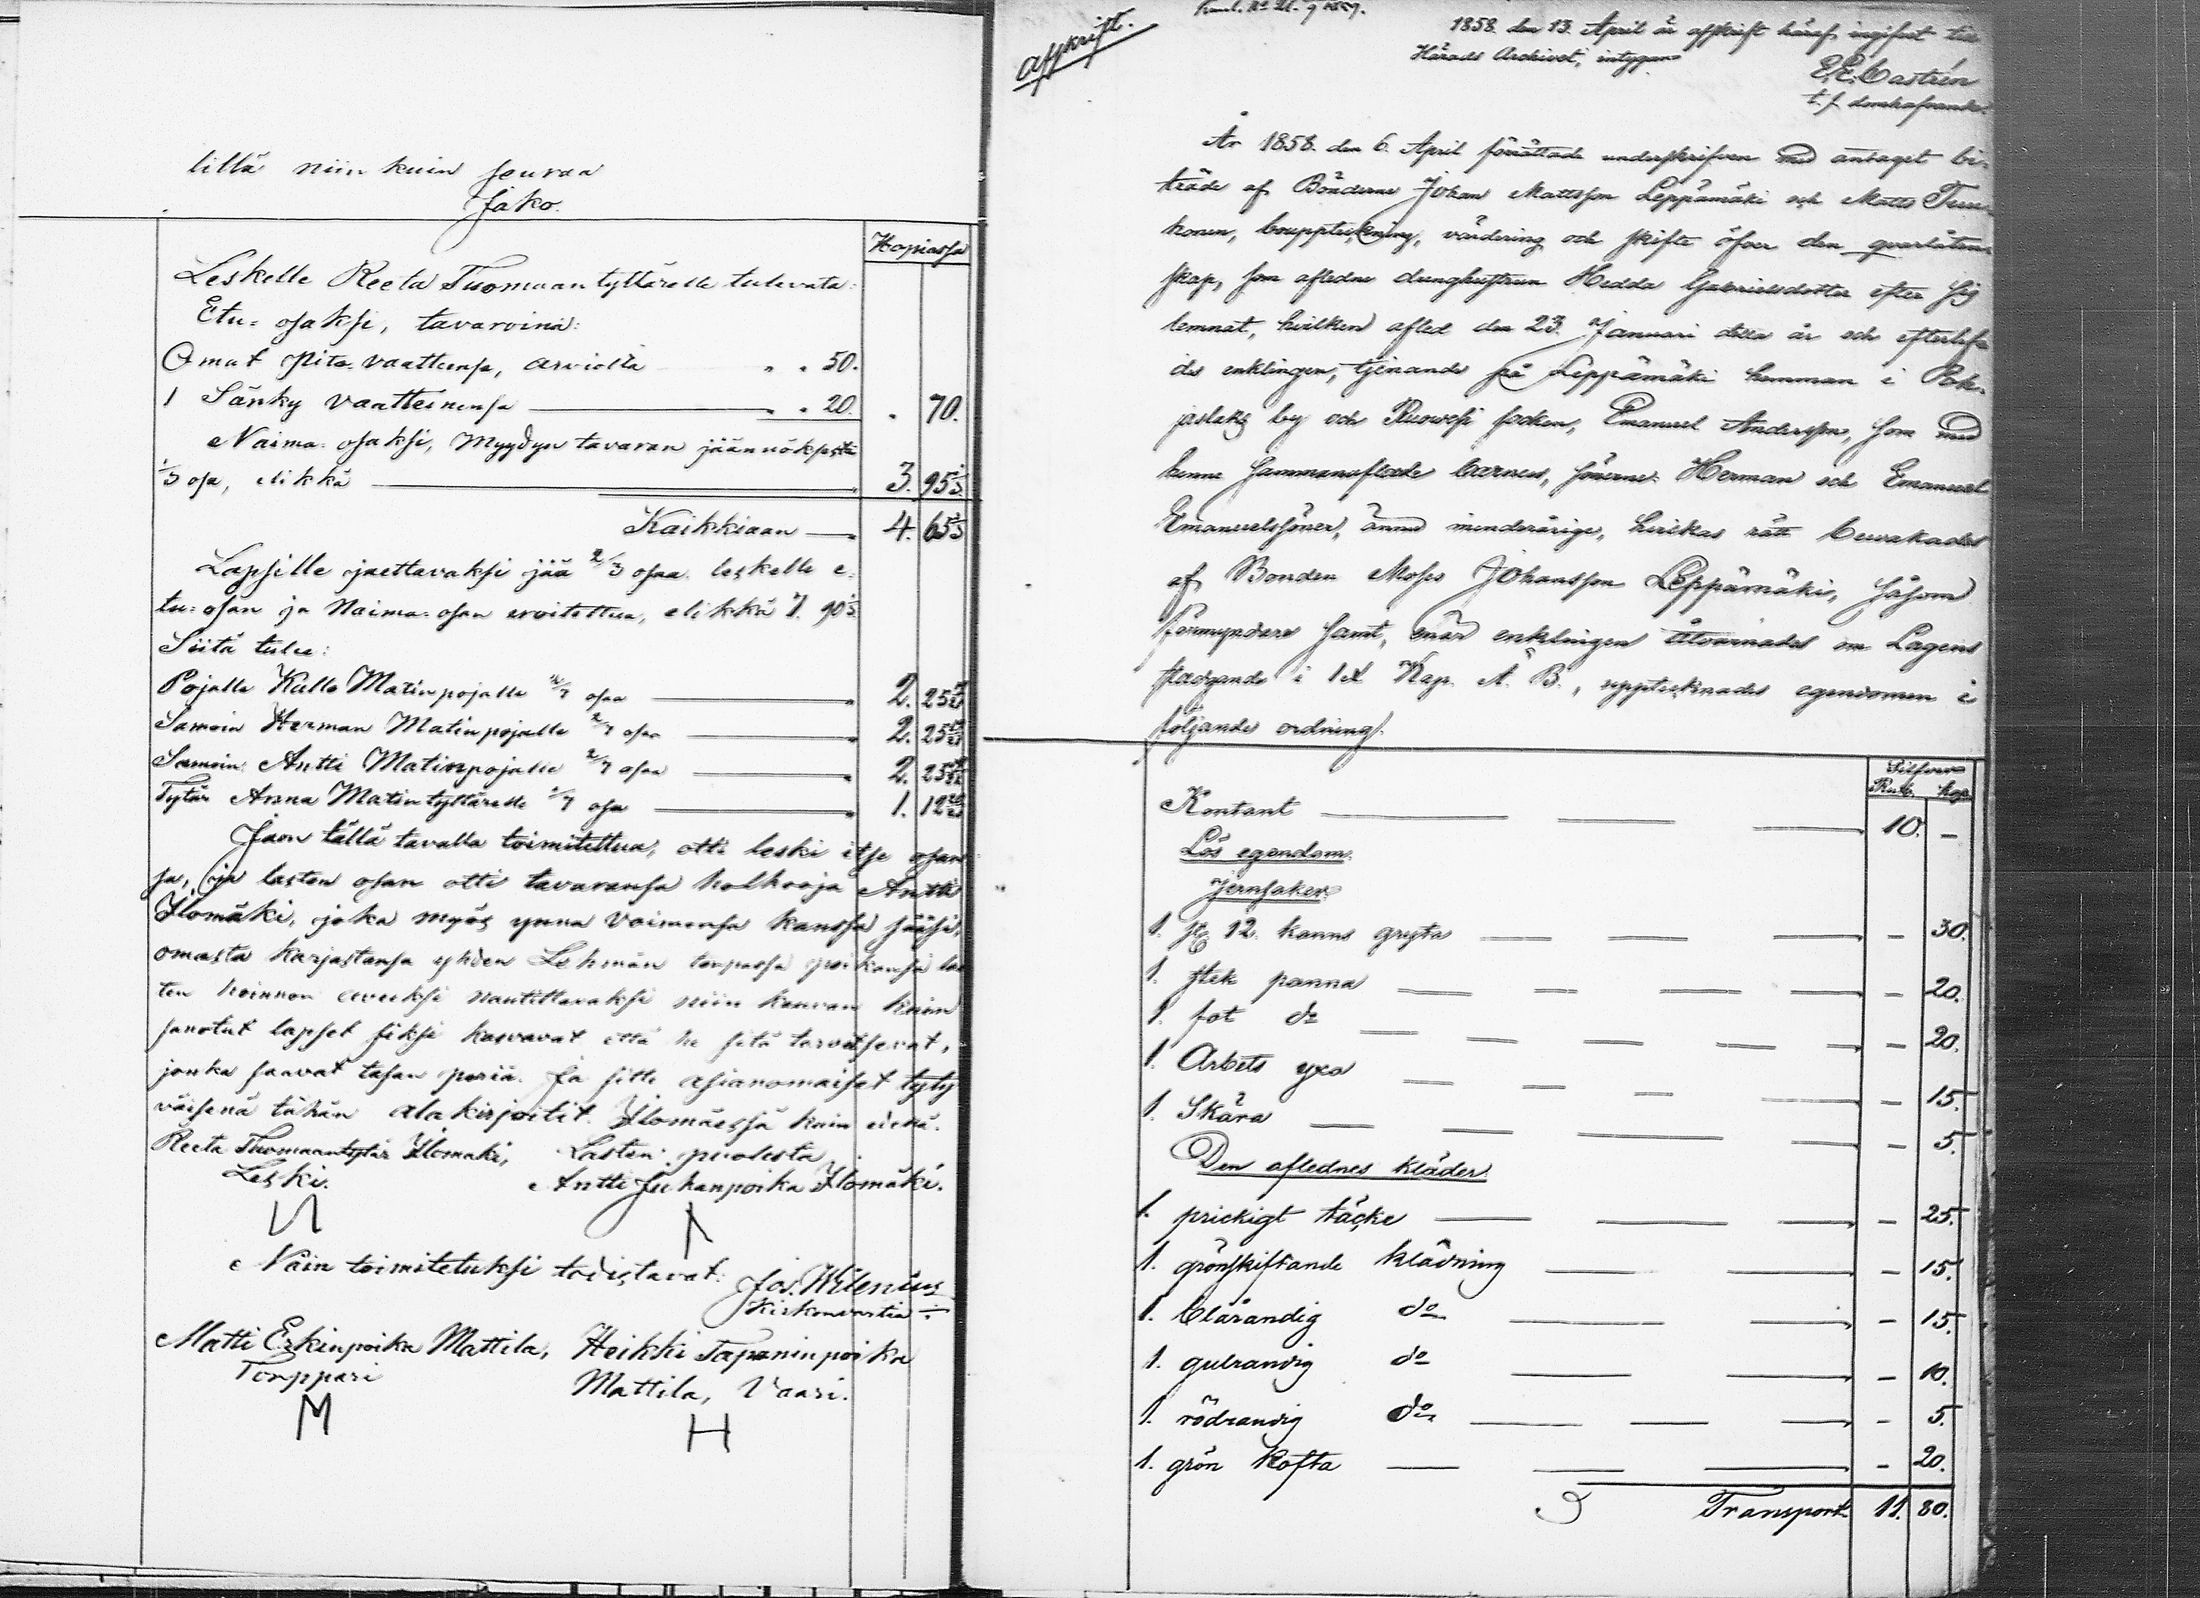 lillä niin kuin seuraa
Jako.
Hopiassa
Leskelle Reeta Tuomaantyttärelle tulevata:
Etu-osaksi, tavaroina:
Omat pito vaatteensa, arviolta " " 50.
1 Sänky vaatteinensa " " 20. " 70.
Naima-osaksi, myydyn tavaran jäännöksestä
1/3 osa, elikkä 3. 95 1/3
Kaikkiaan 4. 65 1/3
Lapsille jaettavaksi jää 2/3 osaa leskelle e-
tu-osan ja Naima-osan eroitettua, elikkä 7. 90 2/3
Siitä tulee:
Pojalle Kalle Matinpojalle 2/7 osaa 2. 25 19/21
Samoin Herman Matinpojalle 2/7 osaa 2. 25 19/21
Samoin Antti Matinpojalle 2/7 osaa 2. 25 19/21
Tytär Anna Matintyttärelle 1/7 osa 1. 12 20/21
Jaon tällä tavalla toimitettua, otti leski itse osan-
sa, ja lasten osan otti tavaransa holhooja Antti
Ilomäki, joka myös ynnä vaimonsa kanssa
omasta karjastansa yhden Lehmän
ten hoinnon avuksi nautittavaksi niin kauvan kuin
sanotut lapset siksi kasvavat että he sitä tarvitsevat,
jonka saavat tasan periä. Ja sitte asianomaiset tyty-
väisenä tähän alakirjoitit. Ilomäessä kuin
Reeta Tuomaantytär Ilomäki, Lasten puolesta
Leski. Antti Juhanpoika Ilomäki.
Näin toimitetuksi todistavat:
Jos. Wilenius
Kirkonvartia
Matti Erkinpoika Mattila, Heikki Tapaninpoika
Torppari Mattila, Vaari.
M H
Afskrift.
1858 den 13 April är afskrift häraf ingifvet till
Härads Archivet, intygar
E. E. Castrén
t. f. domhafvande.
År 1858 den 6 April förrättade undertecknad med antaget bi-
träde af Bönderne Johan Mattsson Leppämäki och Matts Tuu-
konen, bouppteckning, värdering och skifte öfver den qvarlåten-
skap, som afledne drenghustrun Hedda Gabrielsdotter efter sig
lemnat, hvilken afled den 23 Januari detta år och efterlef-
des enklingen, tjenande på Leppämäki hemman i Poh-
jaslaks by och Ruowesi socken, Emanuel Andersson, som med
henne sammanaflade barnen, sönerne Herman och Emanuel
Emanuelssöner, ännu minderårige, hvilkas rätt bewakades
af Bonden Moses Johansson Leppämäki, såsom
förmyndare samt, enär enklingen åtvarnades om Lagens
stadgande i 1 § Kap. Ä. B., upptecknades egendomen i
följande ordning.
Silfver
Rub. kop.
Kontant 10. —
Lös egendom.
Jernsaker.
1. st. 12 kanns gryta — 30.
1. stek panna — 20.
1. fot do — 20.
1. Arbets yxa — 15.
1. Skära — 5.
Den aflednes kläder.
1. prickigt täcke — 25.
1. grönskiftande klädning — 15.
1. blårandig do — 15.
1. gulrandig do — 10.
1. rödrandig do — 5.
1. grön kofta — 20.
Transport 11. 80.